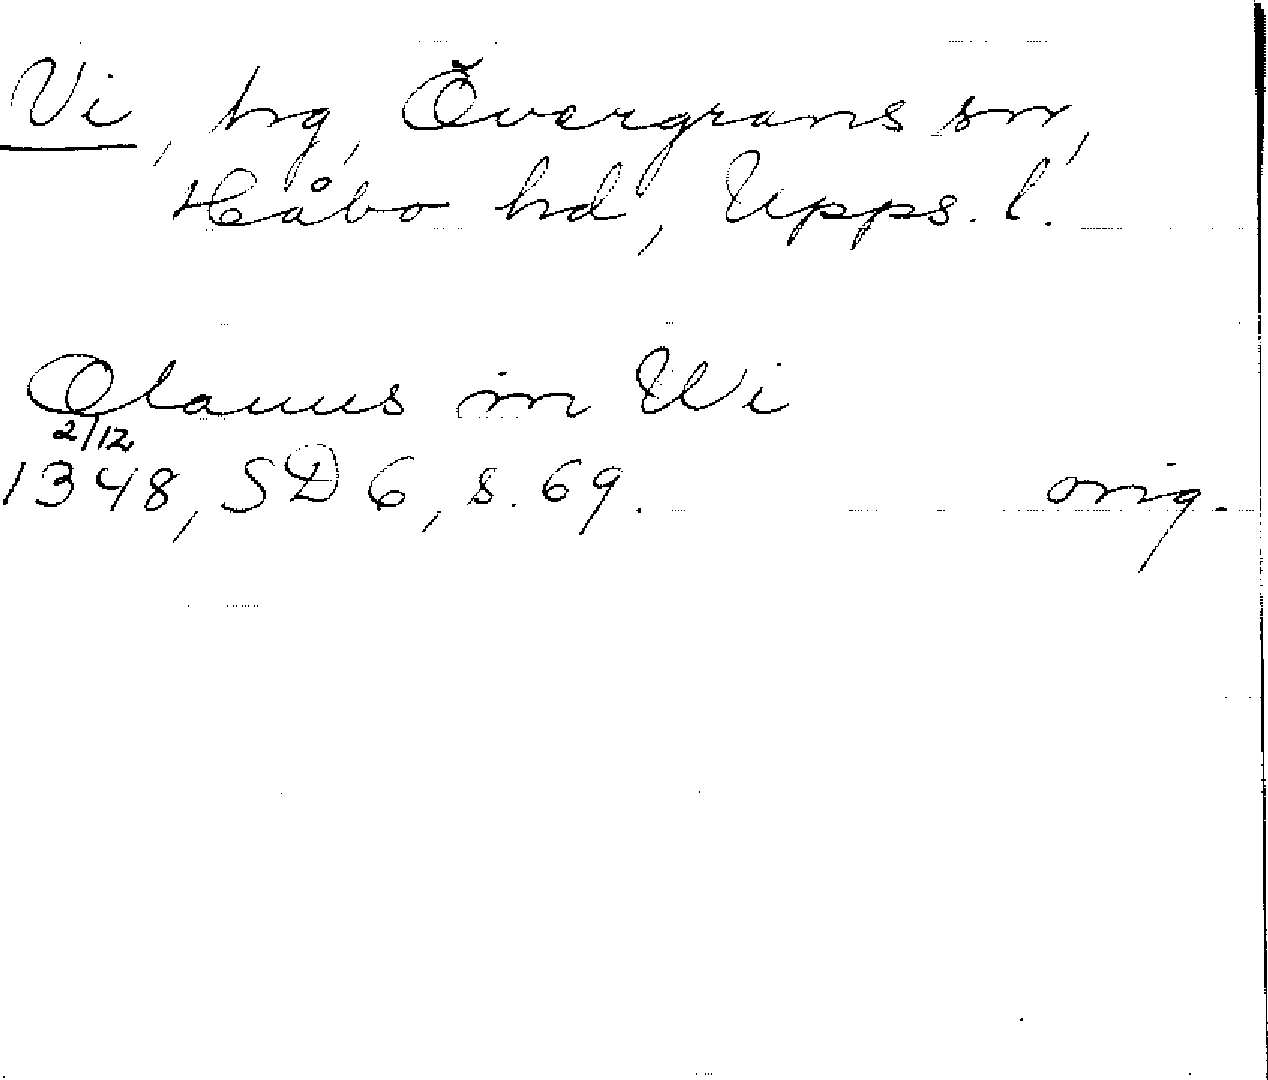 Vi, hg, Övergrans sn,
Håbo hd, Upps. l.
Olauus in Wi
2/12
1348, SD 6, s. 69. orig.